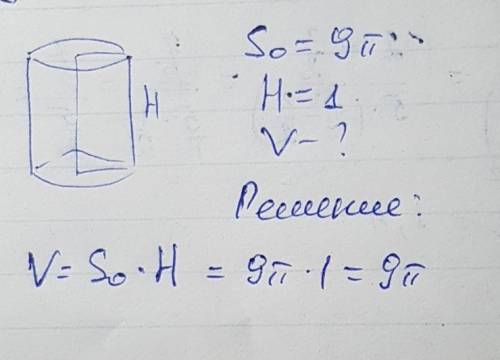 H
S₀ = 9π
H = 1
V - ?
Решение:
V = S₀ · H = 9π · 1 = 9π